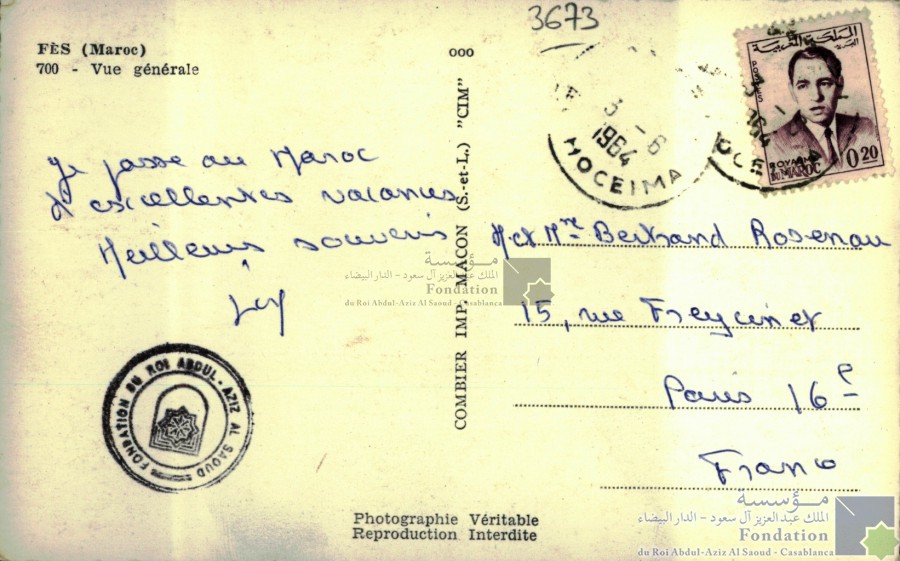 3673
FÈS (Maroc)
700 - Vue générale
ooo
COMBIER IMP. MACON (S.-et-L.) "CIM"
Je passe au Maroc
d'excellentes vacances
Meilleurs souvenirs
3 - 6
1964
HOCEIMA
المملكة المغربية
POSTES
ROYAUME
DU MAROC
0.20
M et Me Bertrand Rosenau
15, rue Freycinet
Paris 16e
France
FONDATION DU ROI ABDUL-AZIZ AL SAOUD
Photographie Véritable
Reproduction Interdite
مؤسسة
الملك عبد العزيز آل سعود - الدار البيضاء
Fondation
du Roi Abdul-Aziz Al Saoud - Casablanca
مؤسسة
الملك عبد العزيز آل سعود - الدار البيضاء
Fondation
du Roi Abdul-Aziz Al Saoud - Casablanca